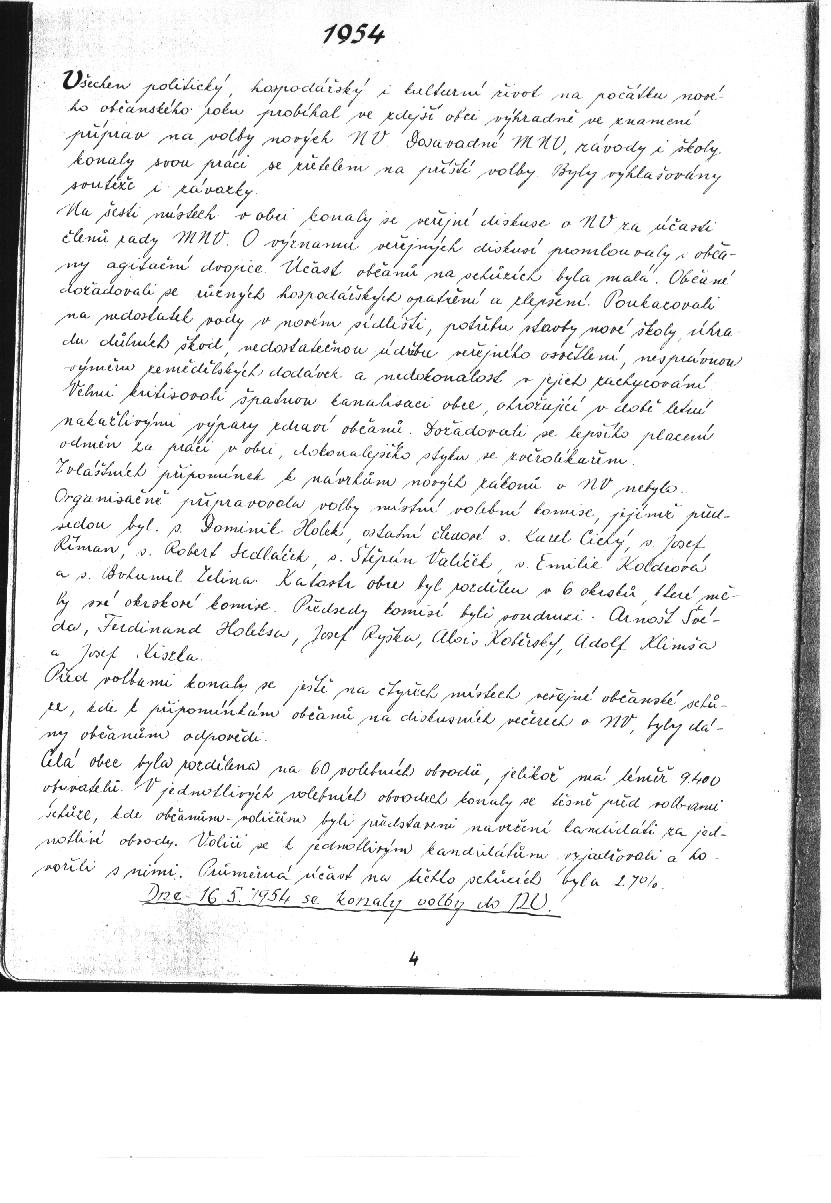 1954
Všechen politický, hospodářský i kulturní život na počátku nové-
ho občanského roku probíhal ve zdejší obci výhradně ve znamení
příprav na volby nových NV. Dosavadní MNV, závody i školy
konaly svou práci se zřetelem na příští volby. Byly vyhlašovány
soutěže i závazky.
Na šesti místech v obci konaly se veřejné diskuse o NV za účasti
členů rady MNV. O významu veřejných diskusí promlouvaly s občа-
ny agitační dvojice. Účast občanů na schůzích byla malá. Občané
dožadovali se různých hospodářských opatření a zlepšení. Poukazovali
na nedostatek vody v novém sídlišti, potřebu stavby nové školy, úhra-
du důlních škod, nedostatečnou údržbu veřejného osvětlení, nesprávnou
výměru zemědělských dodávek a nedokonalost v jejich zachycování
Velmi kritisovali špatnou kanalisaci obce, ohrožující v době letní
nakažlivými výpary zdraví občanů. Dožadovali se lepšího placení
odměn za práci v obci, dokonalejšího styku se zvěrolékařem.
Zvláštních připomínek k návrhům nových zákonů o NV nebylo.
Organisačně připravovala volby místní volební komise, jejímž před-
sedou byl s. Dominik Holek, ostatní členové s. Karel Cichý, s. Josef
Říman, s. Robert Sedláček, s. Štěpán Valíček, s. Emilie Kolderová
a s. Bohumil Zelina. Katastr obce byl rozdělen v 6 okrsků, které mě-
ly své okrskové komise. Předsedy komisí byli soudruzi: Arnošt Své-
da, Ferdinand Holeksa, Josef Ryška, Alois Kobérský, Adolf Klimša
a Josef Kiszka.
Před volbami konaly se ještě na čtyřech místech veřejné občanské schů-
ze, kde k připomínkám občanů na diskusních večerech o NV, byly dá-
ny občanům odpovědi.
Celá obec byla rozdělena na 60 volebních obvodů, jelikož má téměř 9.400
obyvatelů. V jednotlivých volebních obvodech konaly se těsně před volbami
schůze, kde občanům-voličům byli představeni navržení kandidáti za jed-
notlivé obvody. Voliči se k jednotlivým kandidátům vyjadřovali a ho-
vořili s nimi. Průměrná účast na těchto schůzích byla 27%.
Dne 16. 5. 1954 se konaly volby do NV.
4